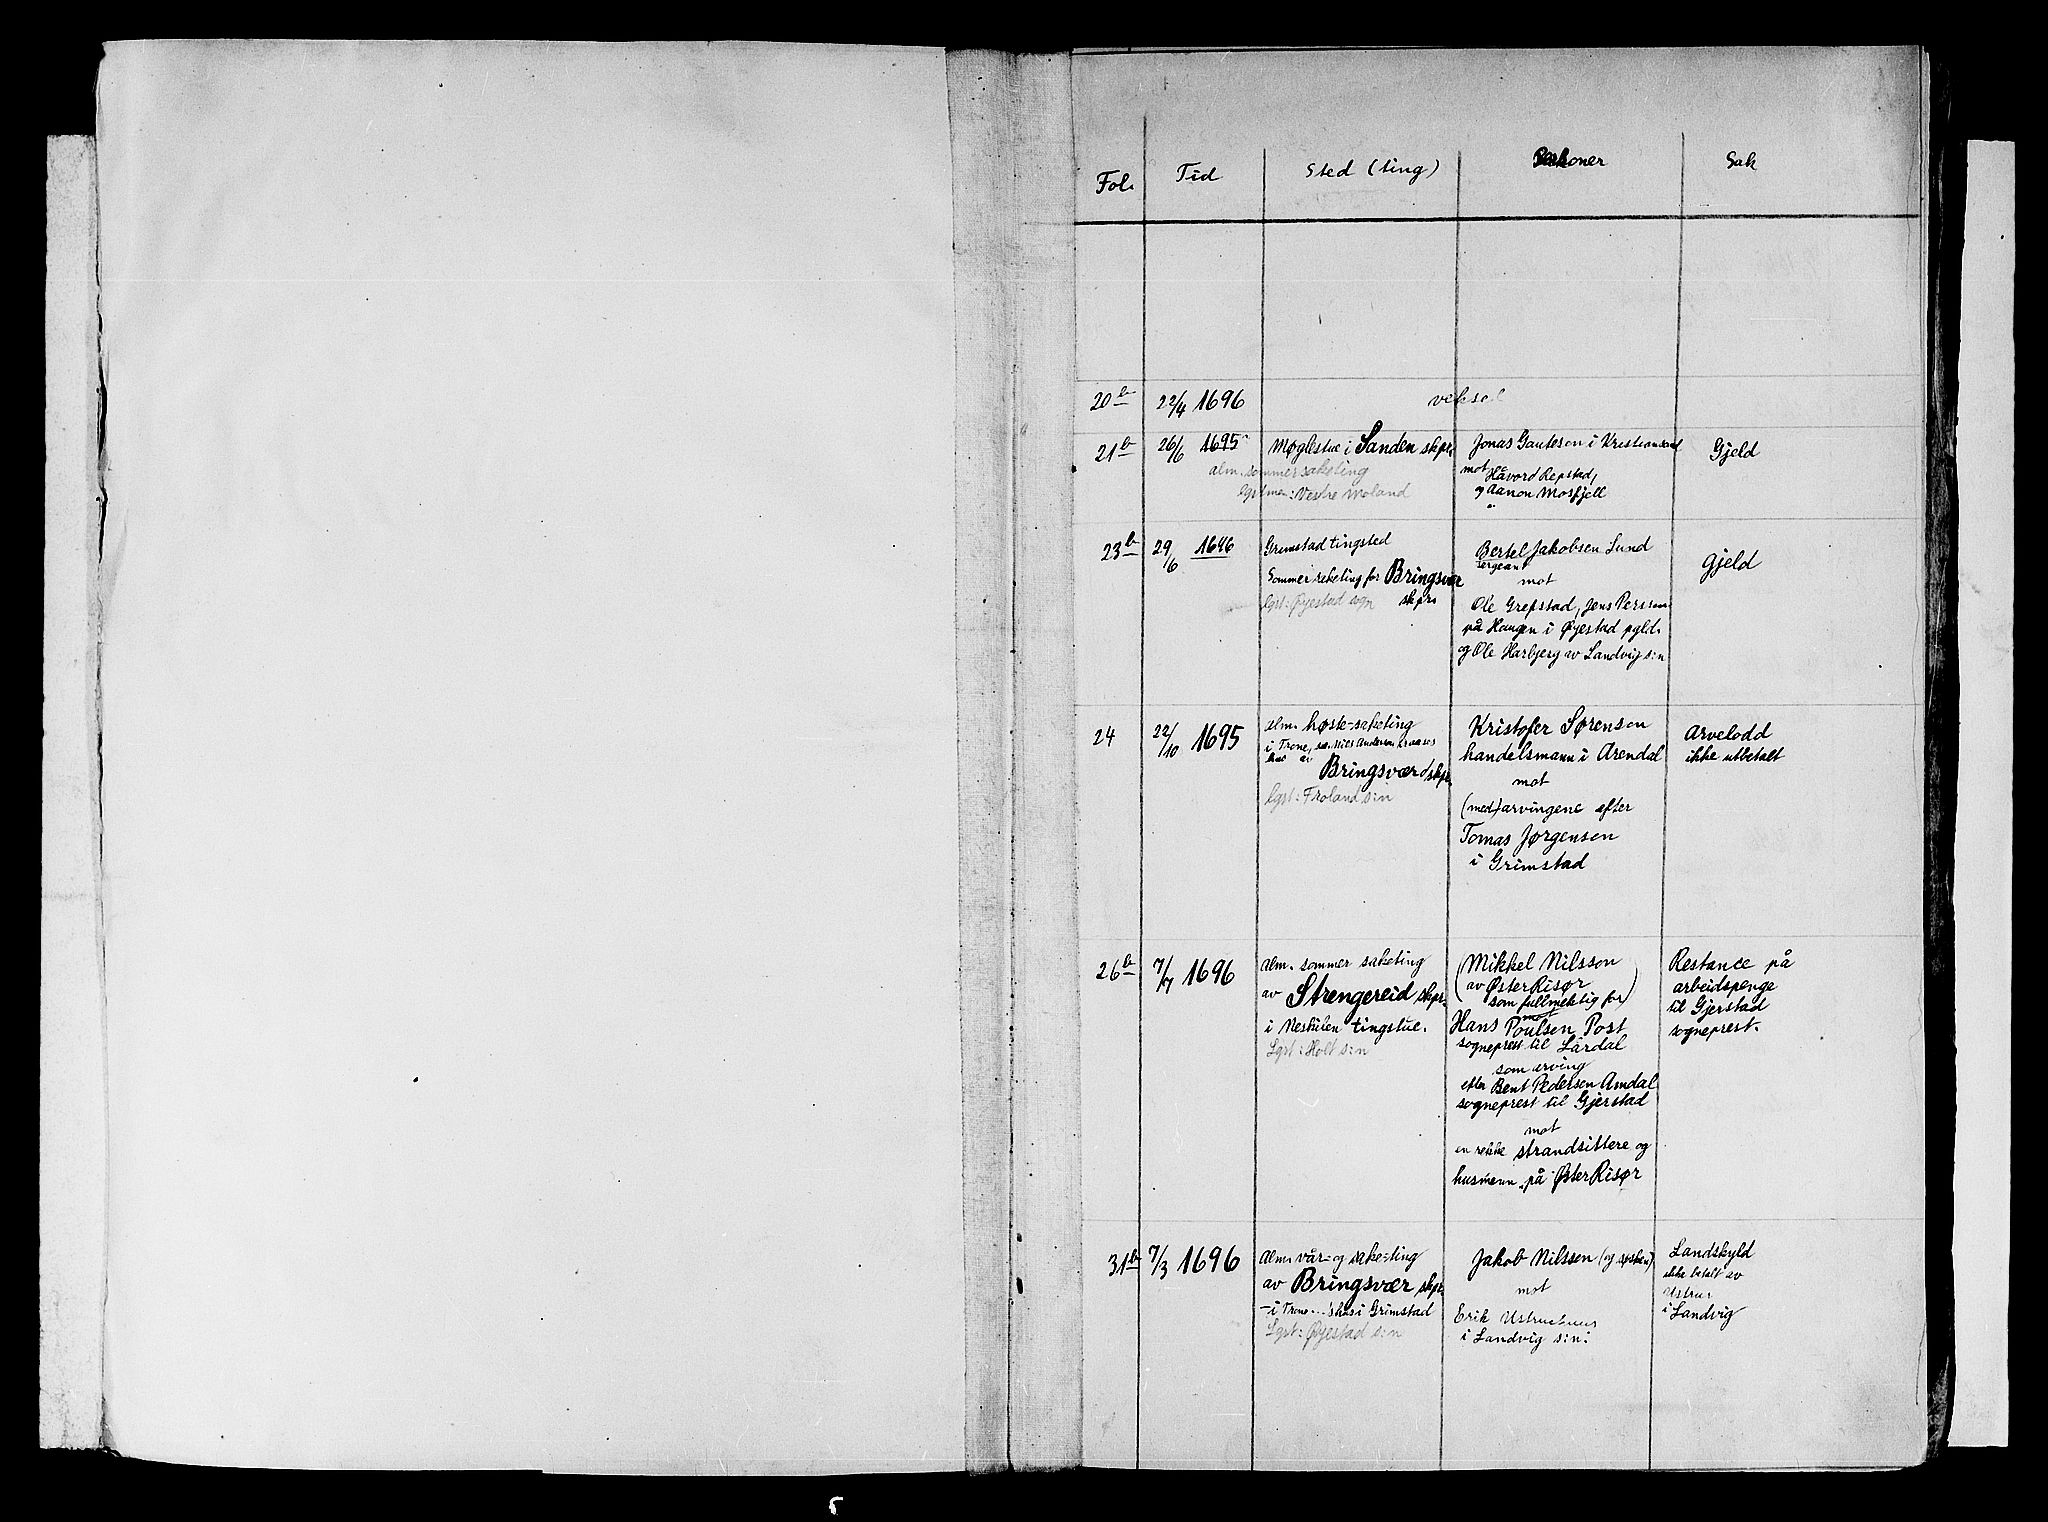 Fol. Tid Sted (ting) Personer Sak
20b 22/4 1696 veksel
21b 26/6 1695 Møglestue i Sanden skpr.
alm. sommer saketing
lgrtmen: Vestre Moland
Jonas Gautesen i Kristiansand
mot Håvord Repstad,
og Aanon Mosfjell
Gjeld
23b 29/6 1696 Grimstad tingsted
Sommer saketing for Bringsvær
lgrt: Øyestad sogn skpr.
Bertel Jakobsen Lund
sergeant
mot
Ole Grefstad, Jens Persson
på Haugen i Øyestad pgld.
og Ole Harbjerg av Landvig s:n
Gjeld
24 22/10 1695 alm. høste-saketing
i Trone, sal. Nils Andersen
hus av
Bringsvær skpr.
lgrt: Froland s:n
Kristofer Sørenson
handelsmann i Arendal
mot
(med) arvingene efter
Tomas Jørgensen
i Grimstad
Arvelodd
ikke utbetalt
26b 7/7 1696 Alm. sommer saketing
av Strengereid skpr.
i Neskilen tingstue.
Lgrt: Holt s:n
(Mikkel Nilsson
av ØsterRisør
som fullmektig for)
mot
Hans Poulsen Post
sogneprest til Lårdal
som arving
efter Bent Pedersen Amdal
sogneprest til Gjerstad
mot
en rekke strandsittere og
husmenn på ØsterRisør
Restance på
arbeidspenge
til Gjerstad
sogneprest.
31b 7/3 1696 Alm. vår- og sake-ting
av Bringsvær skpr.
– i Trone...'s hus i Grimstad
Lgrt: Øyestad s:n
Jakob Nilssen (og søsken)
mot
Erik
i Landvig s:n:
Landskyld
ikke betalt av
Ustrus
i Landvig